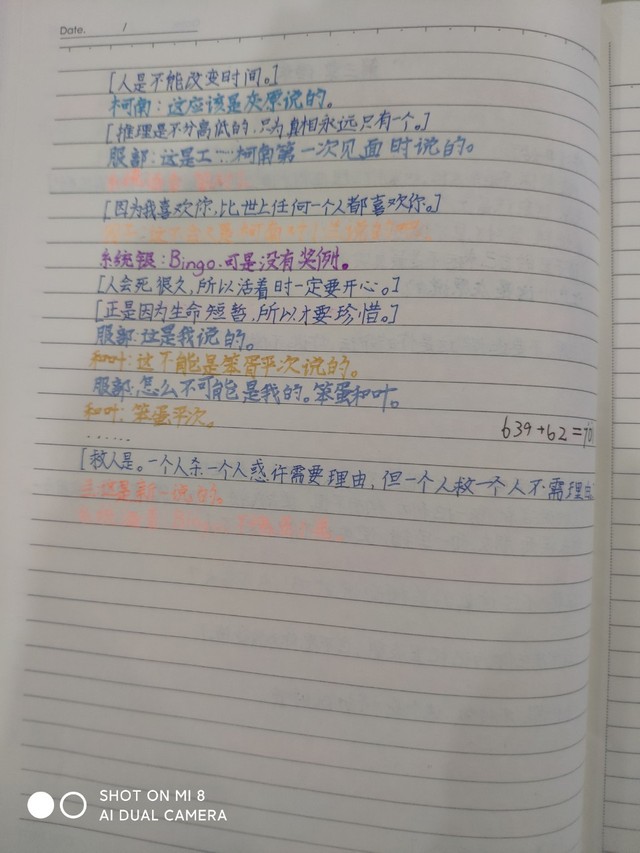 Date. /
[人是不能改变时间。]
柯南:这应该是灰原说的。
[推理是不分高低的,只为真相永远只有一个。]
服部:这是工…柯南第一次见面时说的。
[因为我喜欢你,比世上任何一个人都喜欢你。]
系统银:Bingo.可是没有奖例。
[人会死很久,所以活着时一定要开心。]
[正是因为生命短暂,所以才要珍惜。]
服部:这是我说的。
和叶:这不能是笨蛋平次说的。
服部:怎么不可能是我的。笨蛋和叶。
和叶:笨蛋平次。
639+62=701
······
[救人是。一个人杀一个人惑许需要理由,但一个人救一个人不需理由
兰:这是新一说的。
SHOT ON MI 8
AI DUAL CAMERA